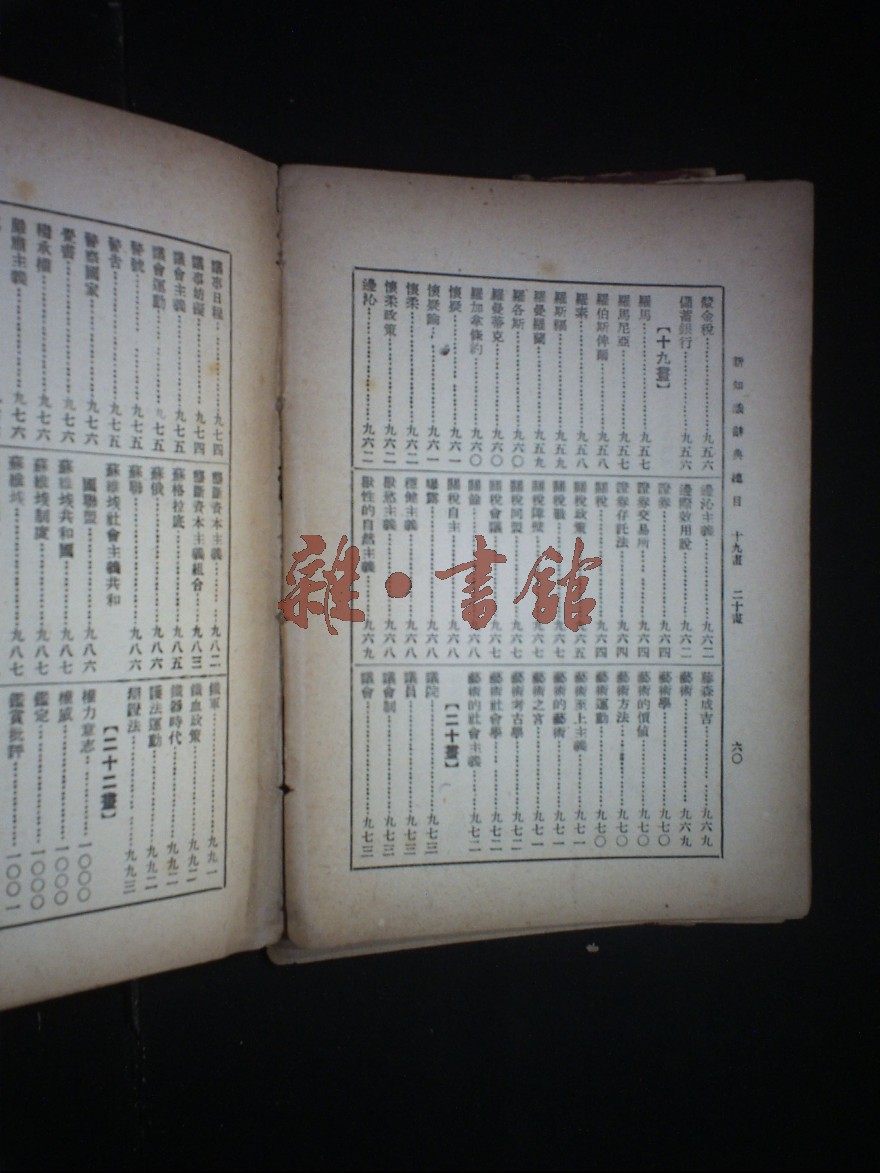 新知識辭典總目 十九畫 二十畫 六〇
釐金稅 九五六
儲蓄銀行 九五六
【十九畫】
羅馬 九五七
羅馬尼亞 九五七
羅伯斯俾爾 九五八
羅素 九五八
羅斯福 九五九
羅曼羅蘭 九五九
羅各斯 九六〇
羅曼蒂克 九六〇
羅加拿條約 九六〇
懷疑 九六一
懷疑論 九六一
懷柔 九六二
懷柔政策 九六二
邊沁 九六二
邊沁主義 九六二
邊際效用說 九六二
證券 九六四
證券交易所 九六四
證券存託法 九六四
關稅 九六四
關稅政策 九六五
關稅戰 九六七
關稅障壁 九六七
關稅同盟 九六七
關稅會議 九六七
關餘 九六八
關稅自主 九六八
曝露 九六八
穩健主義 九六八
獸慾主義 九六八
獸性的自然主義 九六九
藤森成吉 九六九
藝術 九六九
藝術學 九七〇
藝術的價值 九七〇
藝術方法 九七〇
藝術運動 九七〇
藝術至上主義 九七一
藝術的藝術 九七一
藝術之宮 九七一
藝術考古學 九七二
藝術社會學 九七二
藝術的社會主義 九七二
【二十畫】
議院 九七三
議員 九七三
議會制 九七三
議會 九七三
議事日程 九七四
議事妨礙 九七四
議會主義 九七五
議會運動 九七五
警號 九七五
警告 九七五
警察國家 九七六
覺書 九七六
繼承權 九七六
壟斷資本主義 九八二
壟斷資本主義組合 九八三
蘇格拉底 九八五
蘇俄 九八六
蘇聯 九八六
蘇維埃社會主義共和
國聯盟 九八六
蘇維埃共和國 九八七
蘇維埃制度 九八七
蘇維埃 九八七
鐵軍 九九一
鐵血政策 九九二
鐵器時代 九九二
護法運動 九九二
辯證法 九九三
【二十二畫】
權力意志 一〇〇〇
權威 一〇〇〇
鑑定 一〇〇〇
鑑賞批評 一〇〇一
雜·書館